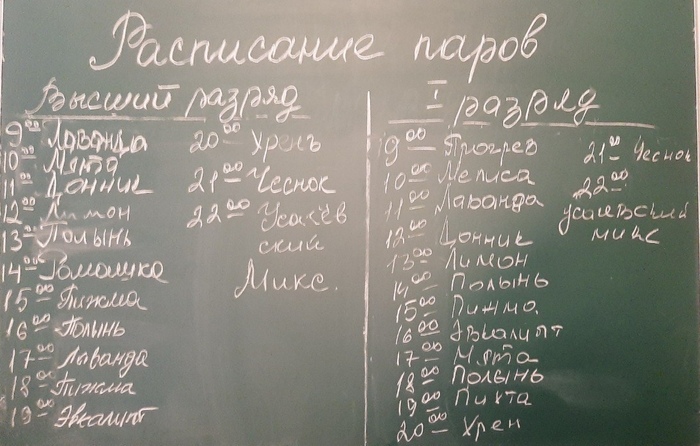 Расписание паров
Высший разряд
9⁰⁰ Лаванда
10⁰⁰ Мята
11⁰⁰ Донник
12⁰⁰ Лимон
13⁰⁰ Полынь
14⁰⁰ Ромашка
15⁰⁰ Пижма
16⁰⁰ Полынь
17⁰⁰ Лаванда
18⁰⁰ Пижма
19⁰⁰ Эвкалипт
20⁰⁰ Хренъ
21⁰⁰ Чеснок
22⁰⁰ Усачёв
ский
Микс.
I разряд
9⁰⁰ Прогрев
10⁰⁰ Мелиса
11⁰⁰ Лаванда
12⁰⁰ Донник
13⁰⁰ Лимон
14⁰⁰ Полынь
15⁰⁰ Пижма.
16⁰⁰ Эвкалипт
17⁰⁰ Мята
18⁰⁰ Полынь
19⁰⁰ Пихта
20⁰⁰ Хрен
21⁰⁰ Чеснок
22⁰⁰
микс